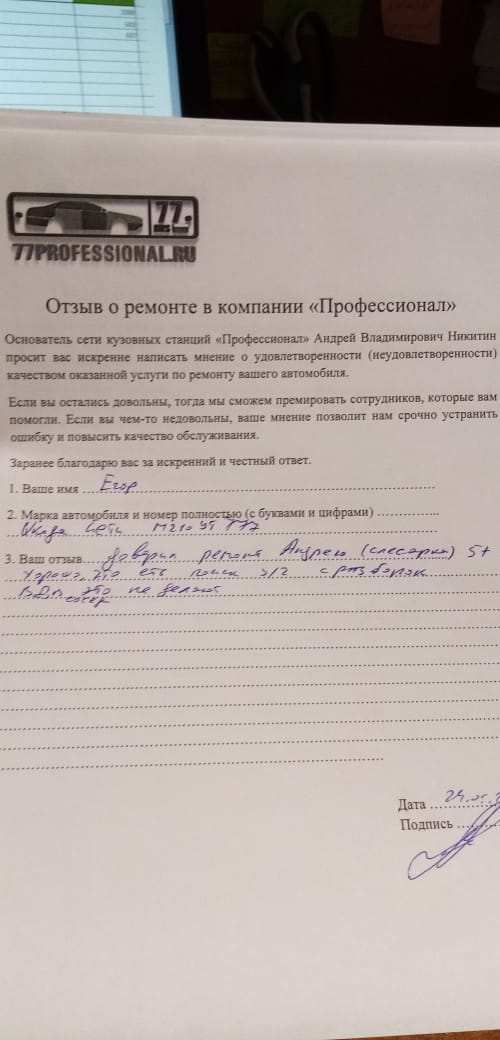 77
77PROFESSIONAL.RU
Отзыв о ремонте в компании «Профессионал»
Основатель сети кузовных станций «Профессионал» Андрей Владимирович Никитин
просит вас искренне написать мнение о удовлетворенности (неудовлетворенности)
качеством оказанной услуги по ремонту вашего автомобиля.
Если вы остались довольны, тогда мы сможем премировать сотрудников, которые вам
помогли. Если вы чем-то недовольны, ваше мнение позволит нам срочно устранить
ошибку и повысить качество обслуживания.
Заранее благодарю вас за искренний и честный ответ.
1. Ваше имя Егор
2. Марка автомобиля и номер полностью (с буквами и цифрами)
Шкода
3. Ваш отзыв доверил ремонт Андрею (слесарка) 5+
Хорошо, что есть поиск з/ч с разборок
это не делают
Дата 24.
Подпись